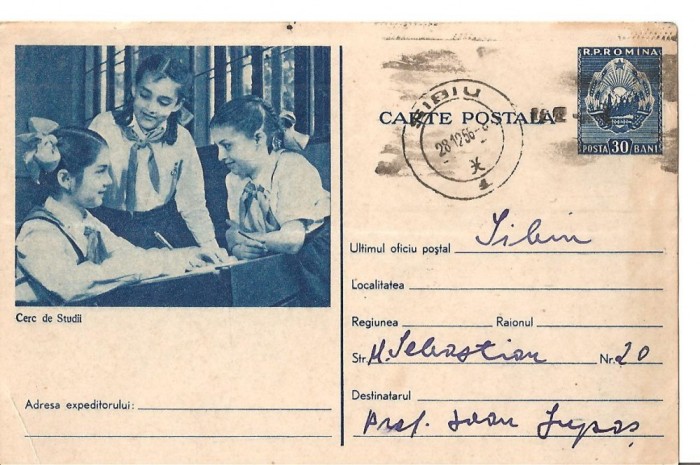 R.P.ROMINA
CARTE POSTALA
SIBIU
28.12.56
1
POSTA 30 BANI
Cerc de Studii
Ultimul oficiu poștal Sibiu
Localitatea
Regiunea Raionul
Str. M. Sebastian Nr. 20
Adresa expeditorului:
Destinatarul
Prof. Ioan Lupaș